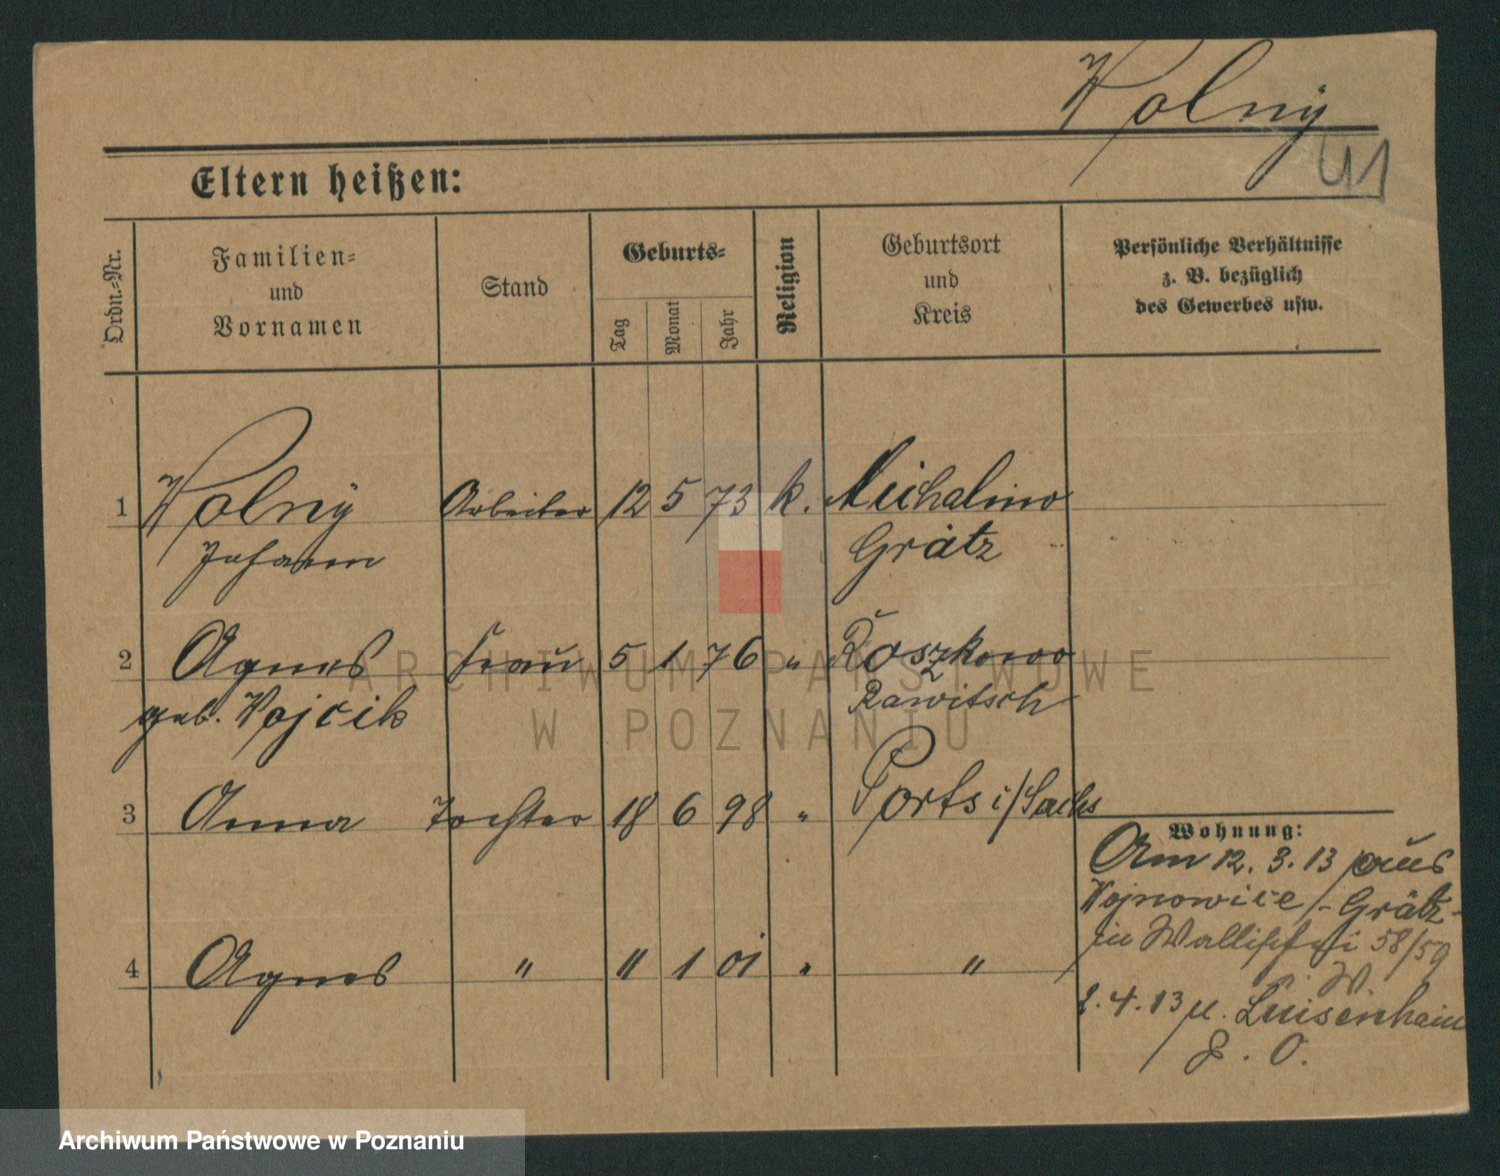 Wolny
41
Eltern heißen:
Ordn.-Nr.
Familien-
und
Vornamen
Stand
Geburts-
Tag
Monat
Jahr
Religion
Geburtsort
und
Kreis
Persönliche Verhältnisse
z. B. bezüglich
des Gewerbes usw.
1 Wolny Arbeiter 12 5 73 k. Michalino
Johann Grätz
2 Agnes Frau 5 1 76 " Roszkowo
geb. Wojcik Rawitsch
3 Anna Tochter 18 6 98 " Ports i/Sachs
4 Agnes " 11 1 01 " "
Wohnung:
Am 12. 3. 13 aus
Wojnowice - Grätz -
in Wallischei 58/59
W.
2. 4. 13 n. Luisenhain
P. O.
ARCHIWUM PAŃSTWOWE
W POZNANIU
Archiwum Państwowe w Poznaniu